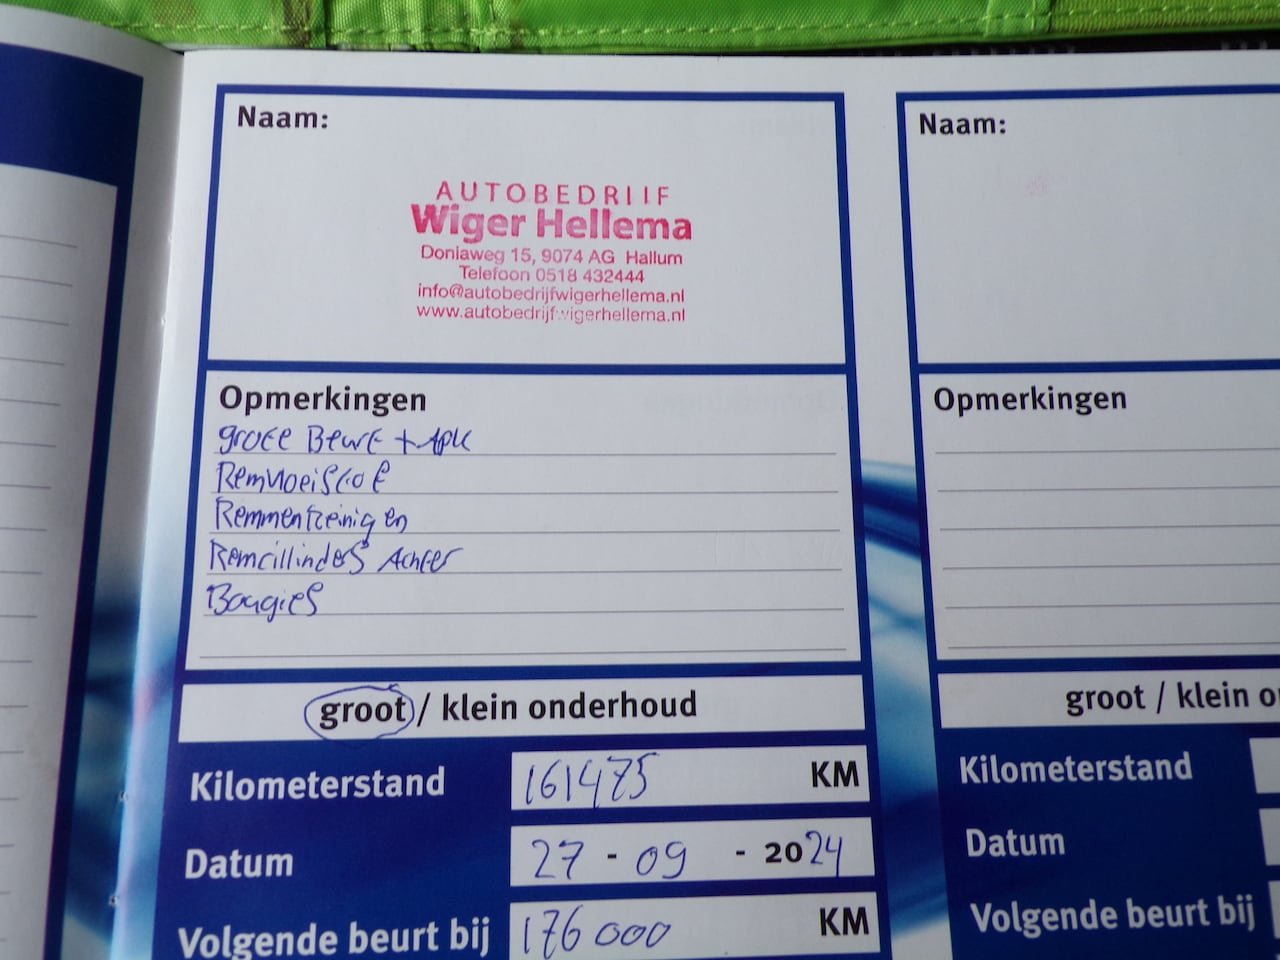 Naam:
AUTOBEDRIJF
Wiger Hellema
Doniaweg 15, 9074 AG Hallum
Telefoon 0518 432444
info@autobedrijfwigerhellema.nl
www.autobedrijfwigerhellema.nl
Opmerkingen
grote Beurt + APK
Remvloeistof
Remmen reinigen
Remcillinders Achter
Bougies
groot / klein onderhoud
Kilometerstand 161475 KM
Datum 27 - 09 - 2024
Volgende beurt bij 176000 KM
Naam:
Opmerkingen
groot / klein
Kilometerstand
Datum
Volgende beurt bij